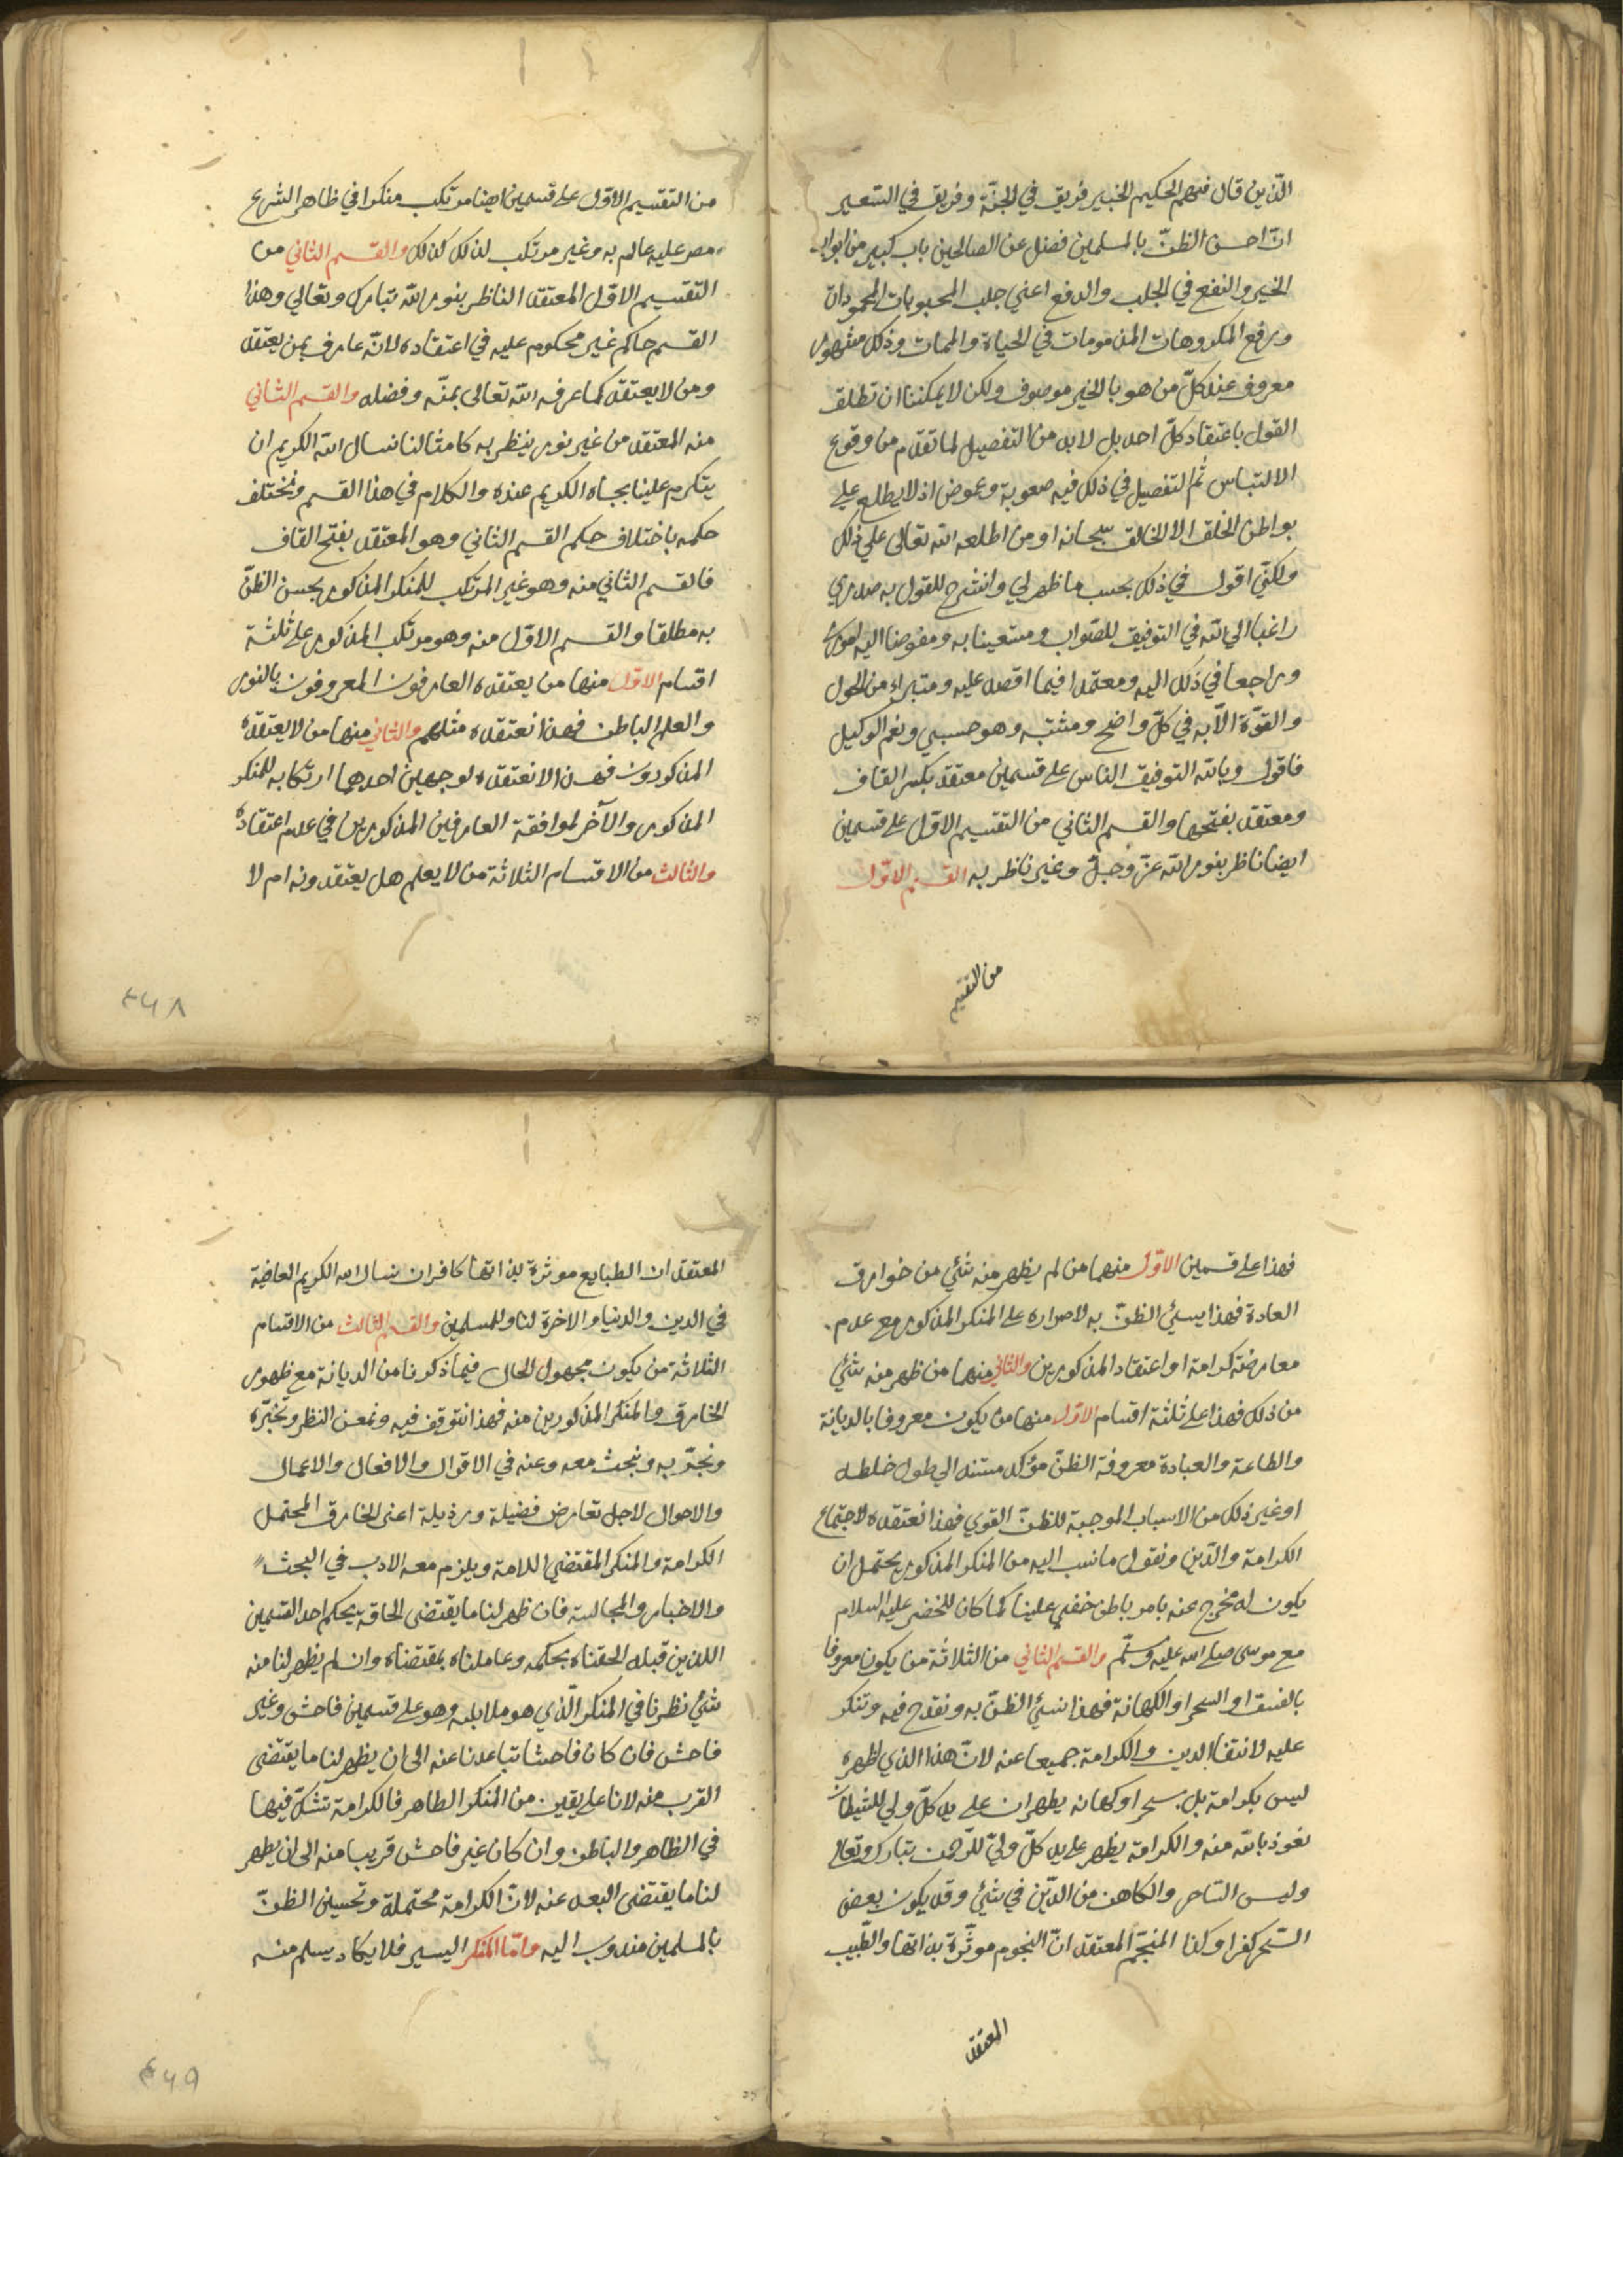 الذين قال فيهم الحكيم الخبير فريق في الجنّة وفريق في السّعير
انّ احسن الظنّ بالمسلمين فضل عن الصالحين باب كبير من ابواب
الخير والنفع في الجلب والدفع اعني جلب المحبوبات المحمودات
ودفع المكروهات المذمومات في الحياة والممات وذلك مشهور
معروف عند كلّ من هو بالخير موصوف ولكن لا يمكننا ان نطلق
القول باعتقاد كلّ احد بل لابد من التفصيل لما تقدم من وقوع
الالتباس ثم التفصيل في ذلك فيه صعوبة وغموض اذ لا يطلع علي
بواطن الخلق الا الخالق سبحانه او من اطلعه الله تعالى علي ذلك
ولكنّي اقول في ذلك بحسب ما ظهر لي وانشرح للقول به صدري
راغبا الي الله في التوفيق للصّواب ومستعينا به ومفوضا اليه اموري
وراجعا في ذلك اليه ومعتمدا فيما اقصد عليه ومتبرا من الحول
والقوّة الّا به في كلّ واضح ومشتبه وهو حسبي ونعم الوكيل
فاقول وبالله التوفيق الناس على قسمين معتقد بكسر القاف
ومعتقد بفتحها والقسم الثاني من التقسيم الاوّل على قسمين
ايضا ناظر بنور الله عزّ وجلّ وغير ناظر به القسم الاوّل
من التقسيم
من التقسيم الاوّل على قسمين ايضا مرتكب منكرا في ظاهر الشرع
مصر عليه عالم به وغير مرتكب لذلك كذلك والقسم الثاني من
التقسيم الاوّل المعتقد الناظر بنور الله تبارك وتعالي وهذا
القسم حاكم غير محكوم عليه في اعتقاده لانّه عارف بمن يعتقد
ومن لا يعتقد كما عرفه الله تعالى بمنّه وفضله والقسم الثاني
منه المعتقد من غير نور ينظر به كامثالنا نسال الله الكريم ان
يتكرم علينا بجاه الكريم عنده والكلام في هذا القسم ونختلف
حكمه باختلاف حكم القسم الثاني وهو المعتقد بفتح القاف
فالقسم الثاني منه وهو غير المرتكب للمنكر المذكور يحسن الظنّ
به مطلقا والقسم الاوّل منه وهو مرتكب المذكور على ثلثة
اقسام الاوّل منها من يعتقده العارفون المعروفون بالنور
والعلم الباطن فهذا نعتقده مثلهم والثاني منها من لا يعتقده
المذكورون فهذا لا نعتقده لوجهين احدهما ارتكابه للمنكر
المذكور والآخر لموافقة العارفين المذكورين في عدم اعتقاده
والثالث من الاقسام الثلاثة من لا يعلم هل يعتقدونه ام لا
٤٦٨
فهذا على قسمين الاوّل منهما من لم يظهر منه شئي من خوارق
العادة فهذا يسئي الظنّ به لاصراره على المنكر المذكور مع عدم
معارضة كرامة او اعتقاد المذكورين والثاني منهما من ظهر منه شئي
من ذلك فهذا على ثلثة اقسام الاوّل منها من يكون معروفا بالديانة
والطاعة والعبادة معروفة الظنّ مؤكد مستند الي طول خلطه
او غير ذلك من الاسباب الموجبة للظنّ القوي فهذا نعتقده لاجتماع
الكرامة والدّين ونقول ما نسب اليه من المنكر المذكور يحتمل ان
يكون له مخرج عنه بامر باطن خفي علينا كما كان للخضر عليه السلام
مع موسى صلى الله عليه وسلّم والقسم الثاني من الثلاثة من يكون معروفا
بالفسق او السحر او الكهانة فهذا نسيئ الظنّ به ونقدح فيه وننكر
عليه لانتفا الدين والكرامة جميعا عنه لانّ هذا الذي اظهره
ليس بكرامة بل سحر او كهانه يظهران على يد كلّ ولي للشيطان
نعوذ بالله منه والكرامة يظهر على يد كلّ وليّ للرّحمن تبارك وتعالى
وليس السّاحر والكاهن من الدّين في شئي وقد يكون بعض
السّحر كفرا وكذا المنجّم المعتقد انّ النجوم موثّرة بذاتها والطّبيب
المعتقد
المعتقد ان الطبايع موثرة بذاتها كافران نسال الله الكريم العافية
في الدين والدنيا والاخرة لنا وللمسلمين والقسم الثالث من الاقسام
الثلاثة من يكون مجهول الحال فيما ذكرنا من الديانة مع ظهور
الخارق والمنكر المذكورين منه فهذا نتوقف فيه ونمعن النظر ونخبّره
ونجرّبه ونبحث معه وعنه في الاقوال والافعال والاعمال
والاحوال لاجل تعارض فضيلة ورذيلة اعنى الخارق المحتمل
الكرامة والمنكر المقتضي اللامة ويلزم معه الادب في البحث
والاختبار والمجالسة فان ظهر لنا ما يقتضى الحاقة بحكم احد القسمين
اللذين قبله الحقناه بحكمه وعاملناه بمقتضاه وان لم يظهر لنا منه
شئي نظرنا في المنكر الّذي هو ملابسه وهو على قسمين فاحش وغير
فاحش فان كان فاحشا تباعدنا عنه الى ان يظهر لنا ما يقتضى
القرب منه لانا على يقين من المنكر الظاهر فالكرامة نشكّ فيها
في الظاهر والباطن وان كان غير فاحش قريبا منه الى ان يظهر
لنا ما يقتضى البعد عنه لانّ الكرامة محتملة وتحسين الظنّ
بالمسلمين مندوب اليه وامّا المنكر اليسير فلا يكاد يسلم منه
٤٦٩